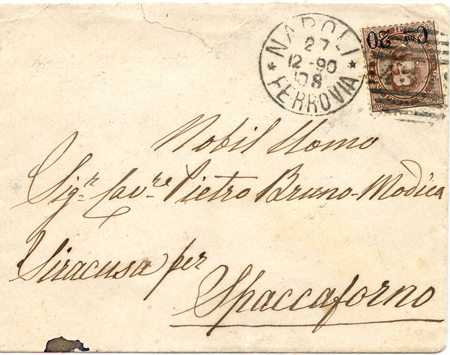 NAPOLI
27
12-90
FERROVIA
Cmi 20
Nobil Uomo
Sigr. Cavre. Pietro Bruno-Modica
(Siracusa) per
Spaccaforno